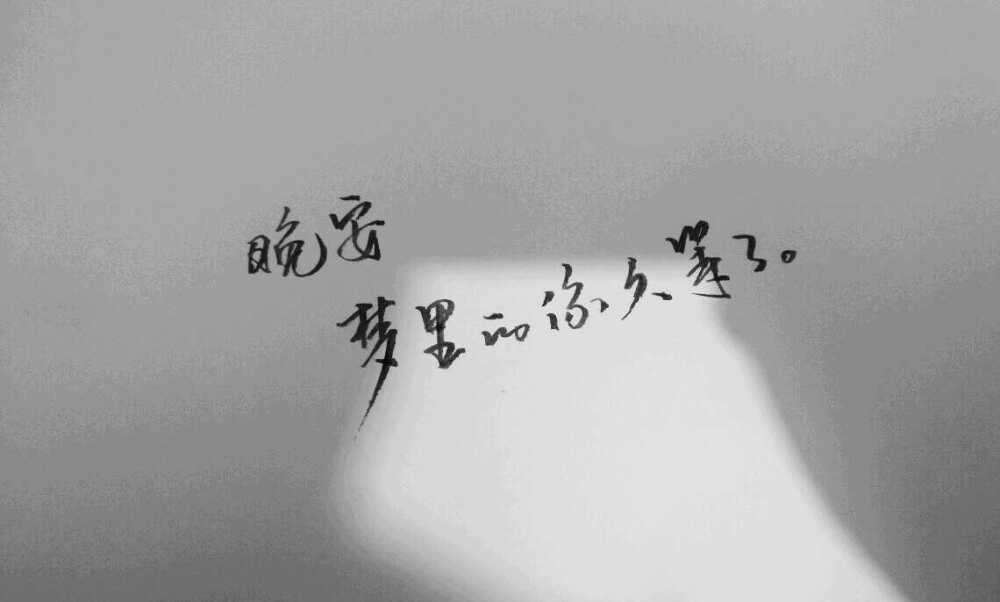 晚安
梦里的你久等了。